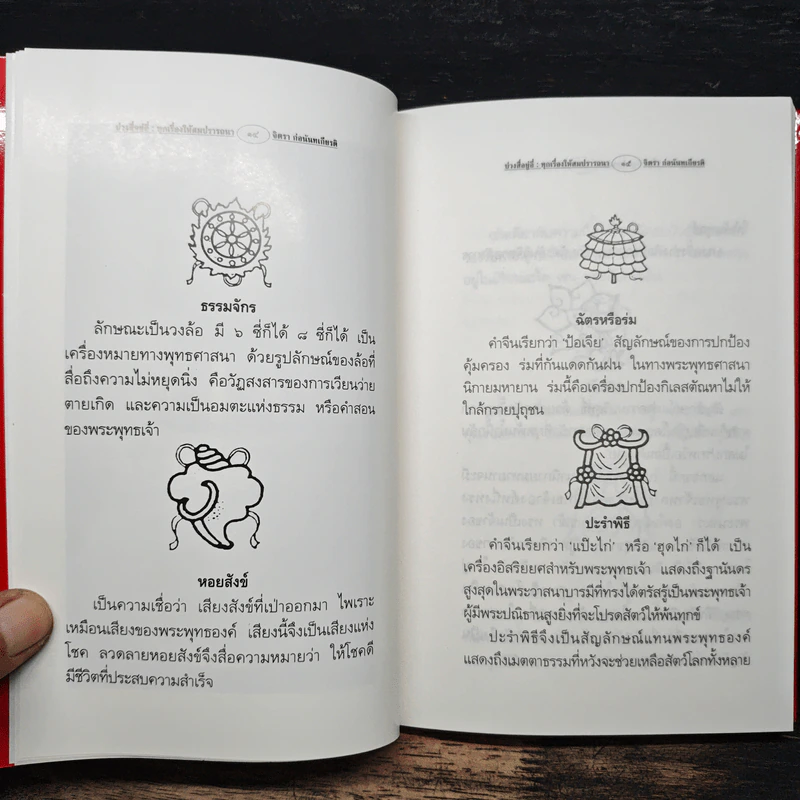 ปวงสื่อยู่ที่ : ทุกเรื่องให้สมปรารถนา ๑๔ จิตรา ก่อนันทเกียรติ
ธรรมจักร
ลักษณะเป็นวงล้อ มี ๖ ซี่ก็ได้ ๘ ซี่ก็ได้ เป็น
เครื่องหมายทางพุทธศาสนา ด้วยรูปลักษณ์ของล้อที่
สื่อถึงความไม่หยุดนิ่ง คือวัฏสงสารของการเวียนว่าย
ตายเกิด และความเป็นอมตะแห่งธรรม หรือคำสอน
ของพระพุทธเจ้า
หอยสังข์
เป็นความเชื่อว่า เสียงสังข์ที่เป่าออกมา ไพเราะ
เหมือนเสียงของพระพุทธองค์ เสียงนี้จึงเป็นเสียงแห่ง
โชค ลวดลายหอยสังข์จึงสื่อความหมายว่า ให้โชคดี
มีชีวิตที่ประสบความสำเร็จ
ปวงสื่อยู่ที่ : ทุกเรื่องให้สมปรารถนา ๑๕ จิตรา ก่อนันทเกียรติ
ฉัตรหรือร่ม
คำจีนเรียกว่า 'ป้อเจีย' สัญลักษณ์ของการปกป้อง
คุ้มครอง ร่มที่กันแดดกันฝน ในทางพระพุทธศาสนา
นิกายมหายาน ร่มนี้คือเครื่องปกป้องกิเลสตัณหาไม่ให้
ใกล้กรายปุถุชน
ปะรำพิธี
คำจีนเรียกว่า 'แป๊ะไก่' หรือ 'ฮุดไก่' ก็ได้ เป็น
เครื่องอิสริยยศสำหรับพระพุทธเจ้า แสดงถึงฐานันดร
สูงสุดในพระวาสนาบารมีที่ทรงได้ตรัสรู้เป็นพระพุทธเจ้า
ผู้มีพระปณิธานสูงยิ่งที่จะโปรดสัตว์ให้พ้นทุกข์
ปะรำพิธีจึงเป็นสัญลักษณ์แทนพระพุทธองค์
แสดงถึงเมตตาธรรมที่หวังจะช่วยเหลือสัตว์โลกทั้งหลาย